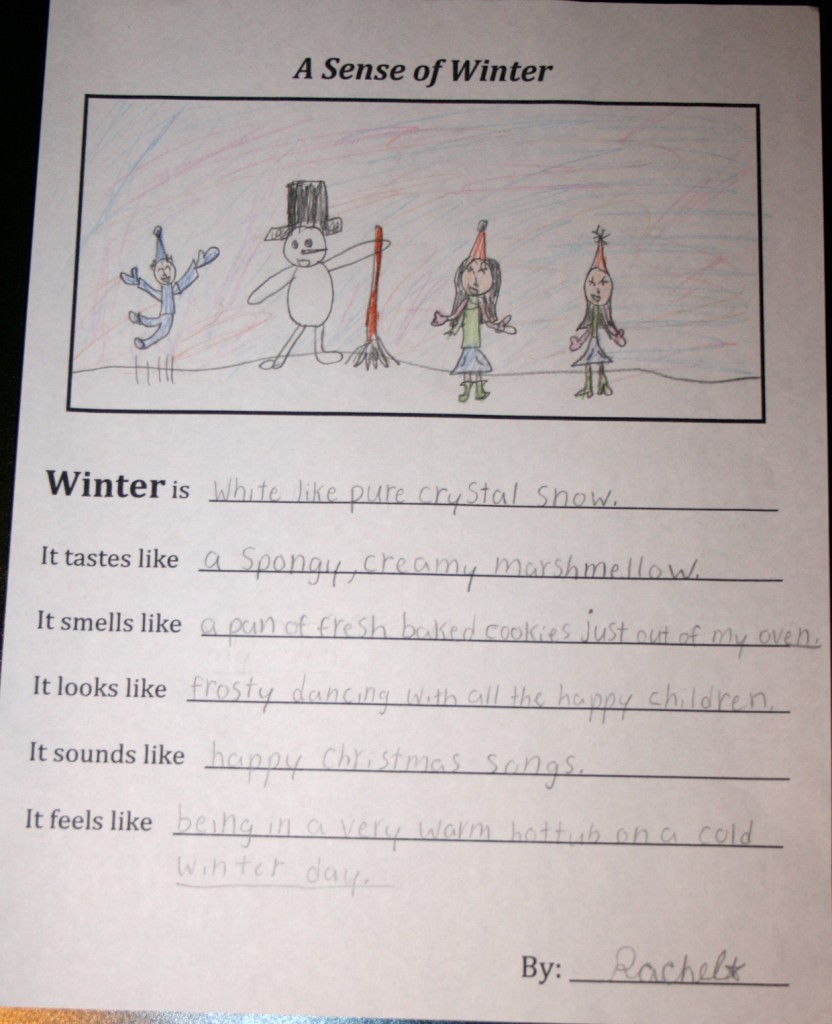 A Sense of Winter
Winter is white like pure crystal snow.
It tastes like a spongy, creamy marshmellow.
It smells like a pan of fresh baked cookies just out of my oven.
It looks like frosty dancing with all the happy children.
It sounds like happy Christmas songs.
It feels like being in a very warm hottub on a cold
winter day.
By: Rachel